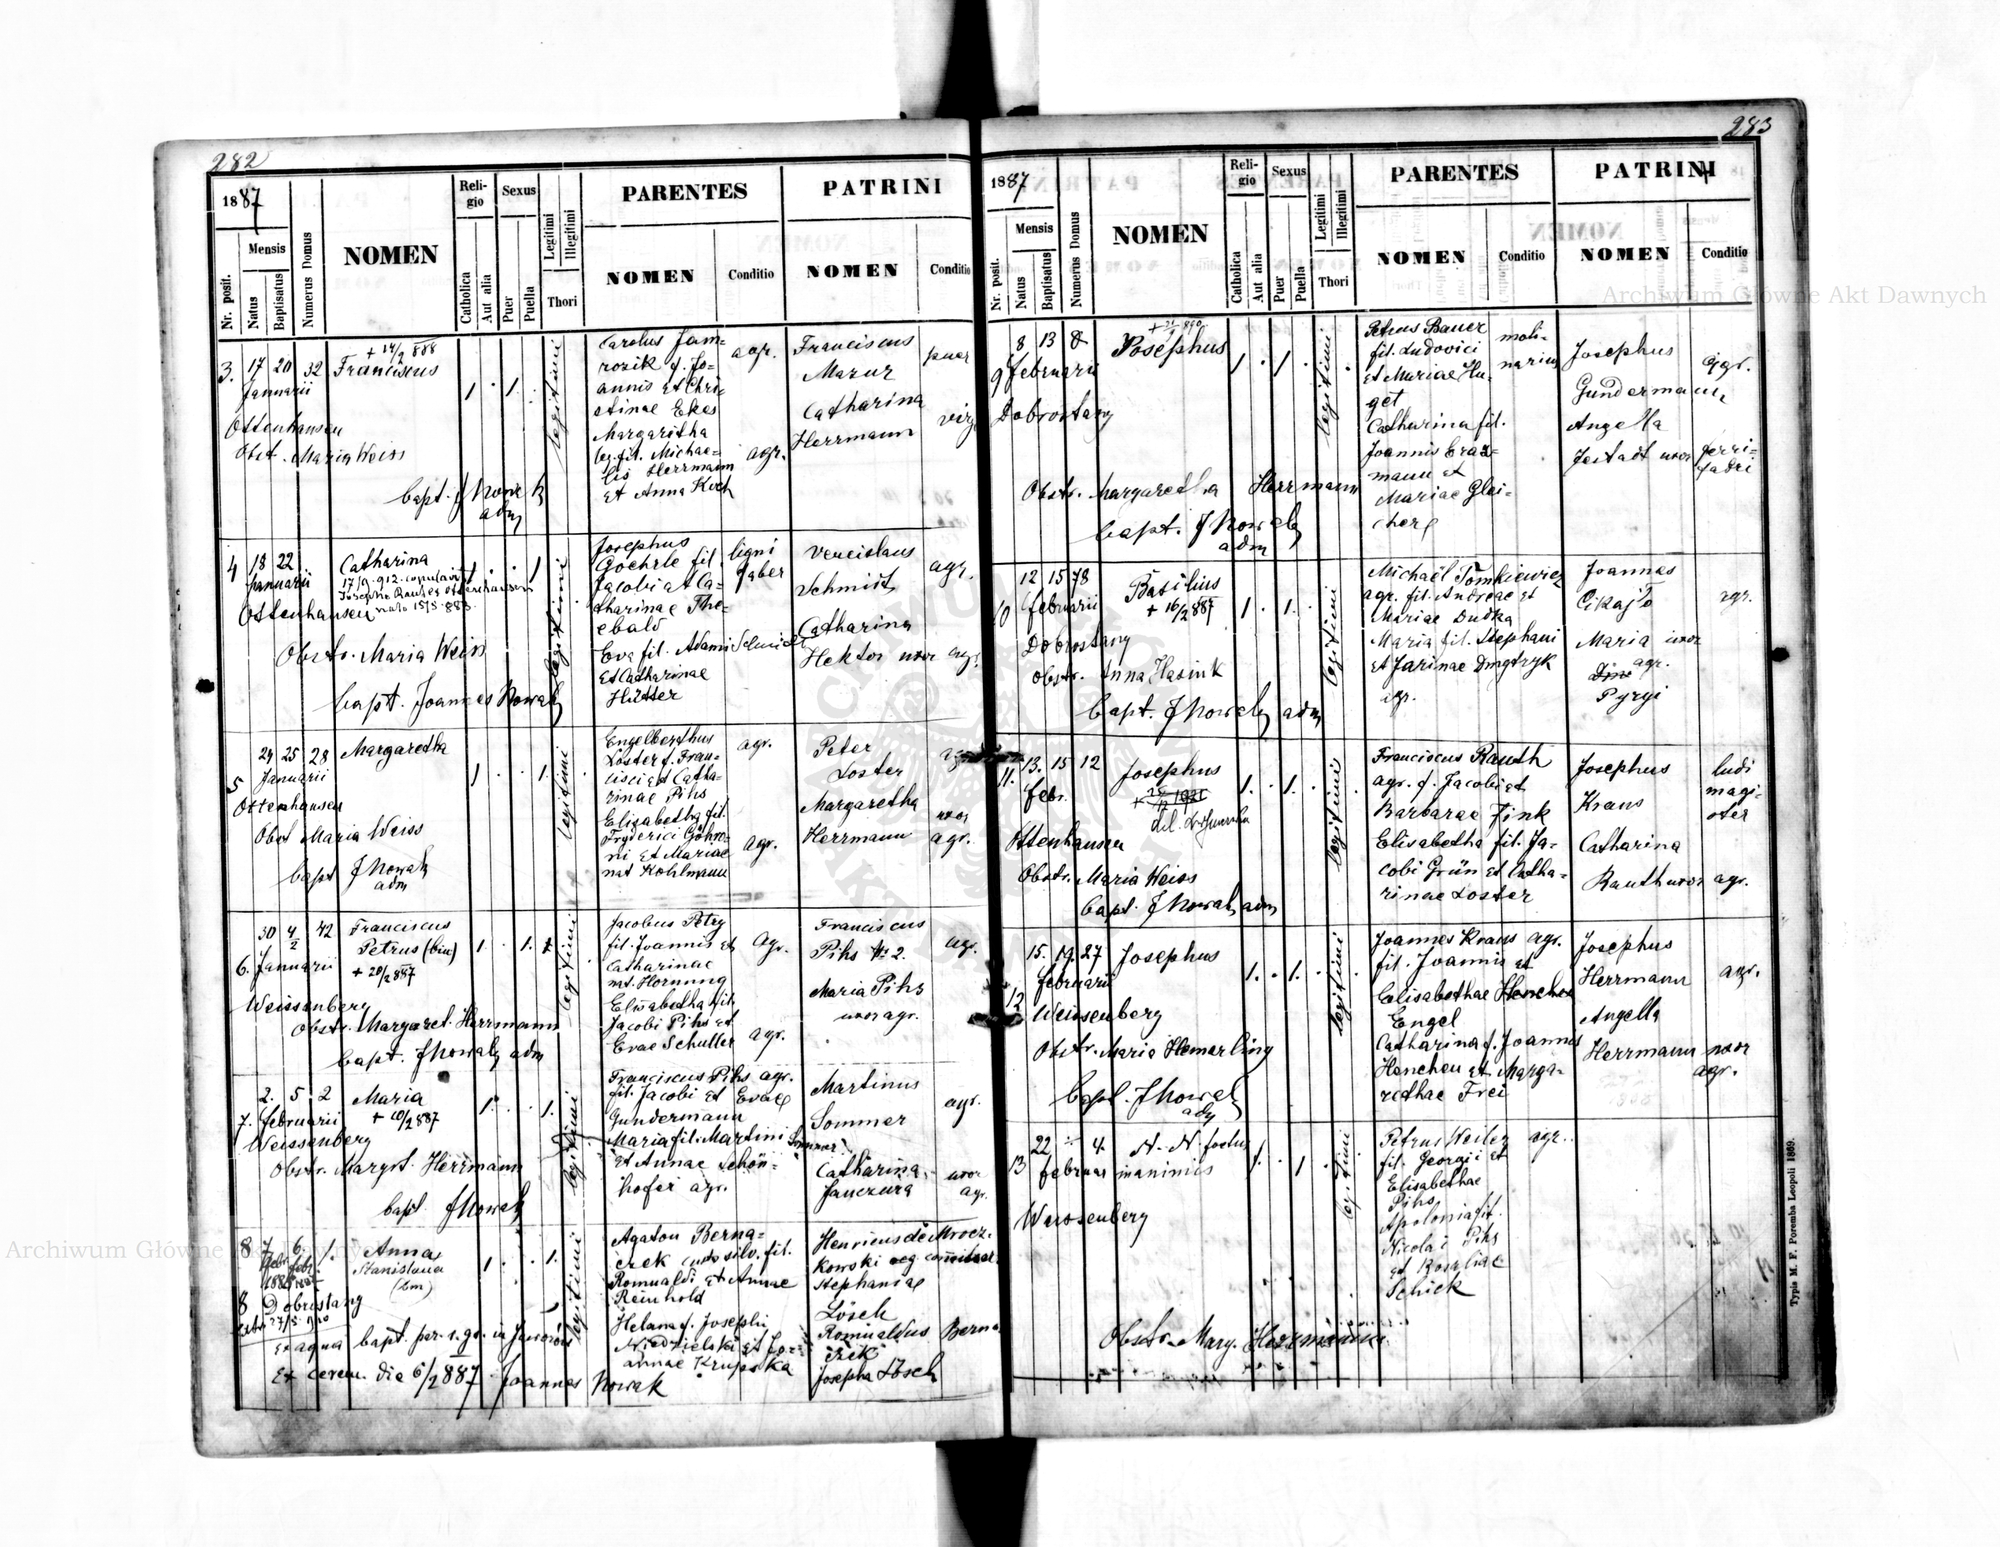 282
1887
Nr. posit.
Mensis
Natus
Baptisatus
Numerus Domus
NOMEN
Religio
Catholica
Aut alia
Sexus
Puer
Puella
Legitimi
Illegitimi
Thori
PARENTES
NOMEN
Conditio
PATRINI
NOMEN
Conditio
3. 17 20 32
Januarii
Ottenhausen
Obst. Maria Weiss
+ 14/2 888
Franciscus
1 . 1 .
legitimi
bapt. J Nowak
adm
Carolus Jam-
rozik f. Jo-
annis et Chri-
stinae Ekes
Margaritha
leg. fil. Michae-
lis Herrmann
et Anna Koch
agr.
agr.
Franciscus
Mazur
Catharina
Herrmann
puer
virg
4 18 22
Januarii
Ottenhausen
Catharina
17/9 912 copulavit
nato 15/5 883
1 . . 1
legitimi
Obstr. Maria Weiss
bapt. Joannes Nowak
Josephus
Goehrle fil.
Jacobi et Ca-
tharinae The-
ebald
Eva fil. Adami Schmidt
et Catharinae
Hütter
ligni
faber
Venceslaus
Schmidt
Catharina
Hektor uxor agr.
agr.
5 24 25 28
Januarii
Ottenhausen
Margaretha
1 . . 1.
legitimi
Obst Maria Weiss
bapt J Nowak
adm
Engelberthus
Loster f. Fran-
cisci et Catha-
rinae Pihs
Elizabetha fil.
Fryderici Göhro-
ni et Mariae
nat Kohlmann
agr.
agr.
Peter
Loster
Margaretha
Herrmann
uxor
agr.
30 4/2 42
6. Januarii
Weissenberg
Franciscus
Petrus (bin)
+ 20/2 887
1. . 1.
legitimi
Obstr. Margaret. Herrmann
bapt. J Nowak adm
Jacobus Petry
fil. Joannis et
Catharinae
nat. Hornung
Elisabetha fil.
Jacobi Pihs et
Evae Schutter
agr.
agr.
Franciscus
Pihs Nr 2.
Maria Pihs
uxor agr.
agr.
2. 5. 2
7. februarii
Weissenberg
Maria
+ 10/2 887
1. . . 1.
legitimi
Obstr. Margrt. Herrmann
bapt J Nowak
Franciscus Pihs agr.
fil. Jacobi et Evae
Gundermann
Maria fil. Martini Sommer
et Annae Schön-
hofer agr.
Martinus
Sommer
Catharina
Janczura
agr.
uxor
agr.
8 7 6 1.
febr. febr.
8 Dobrostany
Anna
Stanislava
(bin)
1 . . 1
legitimi
ex aqua bapt. per
et cerem. dia 6/2 887 Joannes Nowak
Agaton Berna-
czek custo silv. fil.
Romualdi et Annae
Reinhold
Helena f. Josephi
Niedzielski et Jo-
annae Krupska
Henricus de Mrocz-
kowski
Stephania
Lösch
Romualdus Berna-
czek
Josepha Lösch
283
1887
Nr. posit.
Mensis
Natus
Baptisatus
Numerus Domus
NOMEN
Religio
Catholica
Aut alia
Sexus
Puer
Puella
Legitimi
Illegitimi
Thori
PARENTES
NOMEN
Conditio
PATRINI
NOMEN
Conditio
8 13 8
9 februarii
Dobrostany
Josephus
1 . 1 .
legitimi
Obstr. Margaretha Herrmann
bapt. J Nowak
adm
Petrus Bauer
fil. Ludovici
et Mariae Hu-
get
Catharina fil.
Joannis Graz-
mann et
Mariae Glei-
cher
moli-
narius
Josephus
Gundermann
Angella
Jestadt uxor
agr.
ferri-
fabri
12 15 78
10 februarii
Dobrostany
Obstr. Anna Hasiuk
Basilius
+ 16/2 887
1 . 1 .
legitimi
bapt. J Nowak adm
Michaël Tomkiewicz
agr. fil. Andreae et
Mariae Dudka
Maria fil. Stephani
et Jarinae Dmytryk
agr.
Joannes
Cikajlo
Maria uxor
agr.
Pyryi
agr.
11. 13. 15 12
febr.
Ottenhausen
Josephus
1. . 1. .
legitimi
Obstr. Maria Weiss
bapt. J Nowak adm
Franciscus Rauth
agr. f. Jacobi et
Barbarae Fink
Elisabetha fil. Ja-
cobi Grün et Catha-
rinae Loster
Josephus
Kraus
Catharina
Rauth uxor agr.
ludi
magi-
ster
15. 19. 27
12 februarii
Weissenberg
Josephus
1. . 1. .
legitimi
Obstr. Maria Hemerling
bapt. J Nowak
adm
Joannes Kraus agr.
fil. Joannis et
Elisabethae
Engel
Catharina f. Joannis
Henchen et Marga-
rethae Frei
Josephus
Herrmann
Angella
Herrmann uxor
agr.
agr.
22 4
13 februar
Weissenberg
N. N. foetus
1. . 1 .
legitimi
Petrus Weiler agr.
fil. Georgii et
Elisabethae
Pihs
Apolonia fil.
Nicolai Pihs
et Rosaliae
Schick
Obstr. Marg. Herrmann
Typis M. F. Poremba Leopoli 1869.
Archiwum Główne Akt Dawnych
Archiwum Główne Akt Dawnych